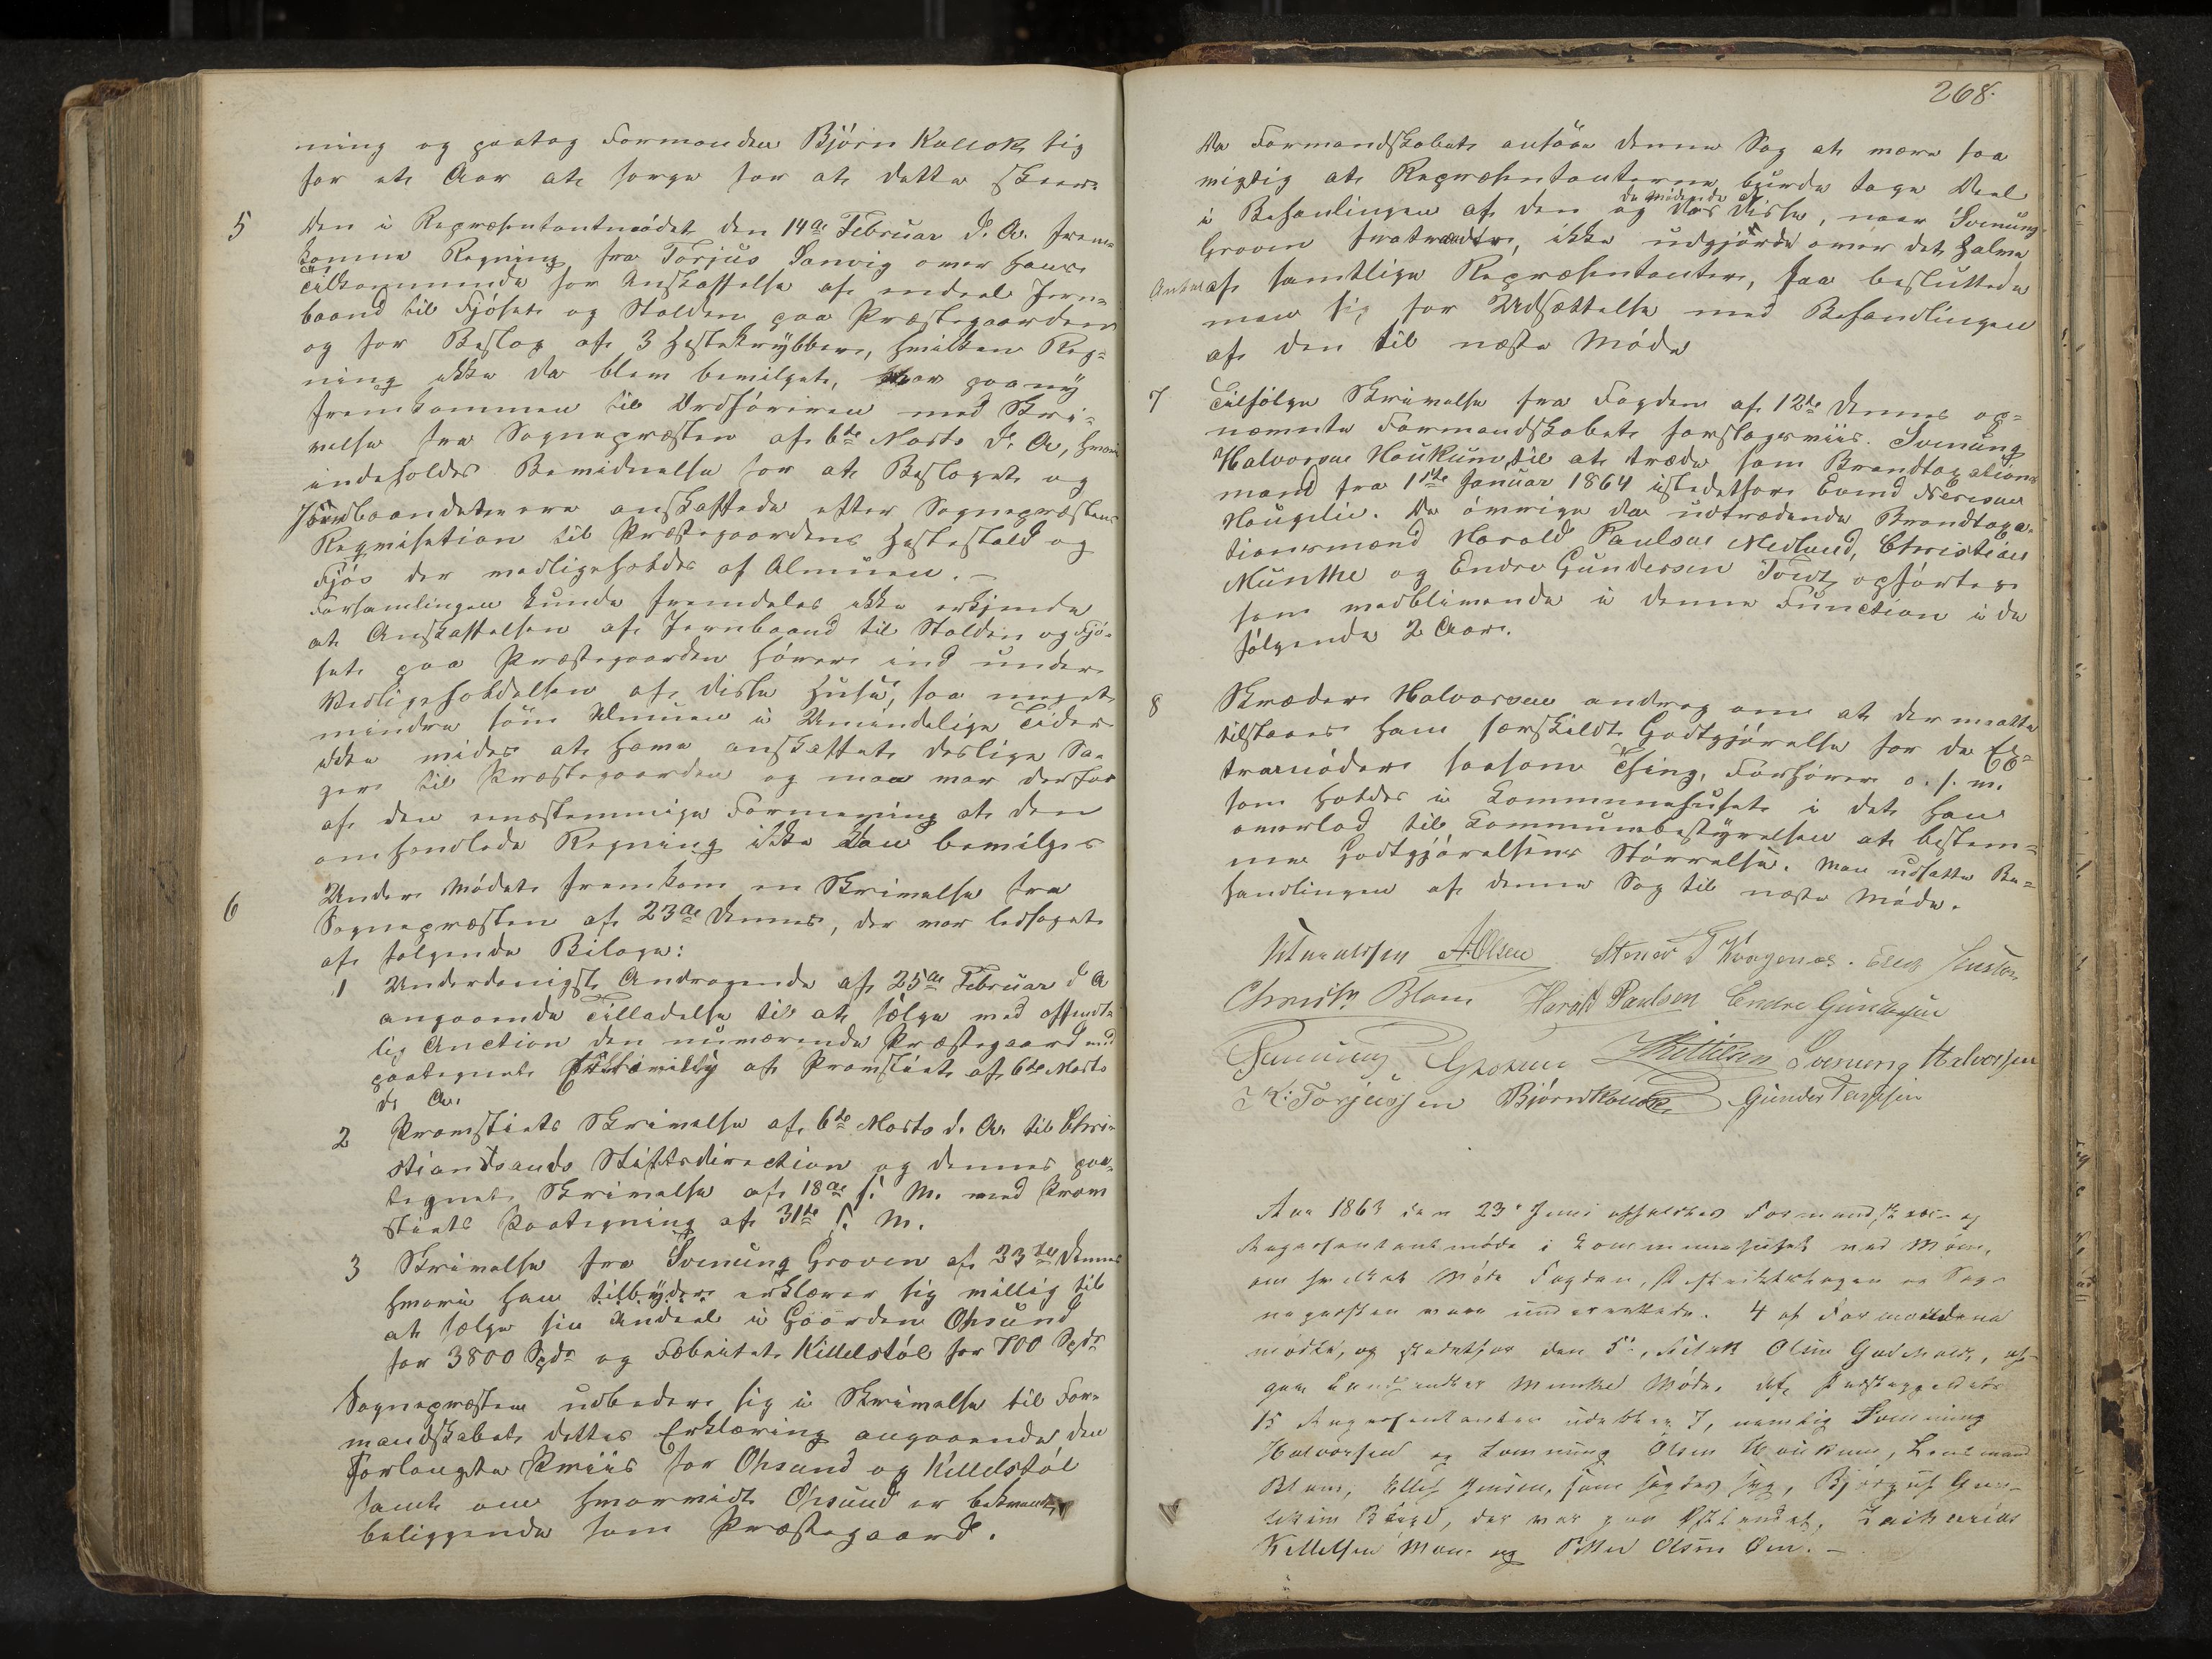 ning og paatog Formanden Björn Kallok sig
for et Aar at sørge for at dette skeer
5 Den i Repræsentantmödet den 14de Februar d. A. frem-
komne Regning fra Torjus Sanvig over hans
Tilkommende for Anskaffelse af endeel Jern-
baand til Fjöset og Stalden paa Præstegaarden
og for Beslag af 3 Hestekrybber, hvilken Reg-
ning ikke da blev bevilget, var paany
fremkommen til Ordföreren med Skri-
velse fra Sognepræsten af 6te Marts d. A., hvori
indeholdes Bevidnelse for at Beslaget og
Jernbaandene ere anskaffede efter Sognepræstens
Reqvisition til Præstegaardens Hestestald og
Fjös der vedligeholdes af Almuen. -
Forsamlingen kunde fremdeles ikke erkjende
at Anskaffelsen af Jernbaand til Stalden og Fjö-
set paa Præstegaarden hörer ind under
Vedligeholdelsen af disse Huse, saa meget
mindre som Almuen i Umindelige Tider
ikke vides at have anskaffet deslige Sa-
ger til Præstegaarden og man var derfor
af den eenstemmige Formening at den
omhandlede Regning ikke kan bevilges
6 Under Mödet fremkom en Skrivelse fra
Sognepræsten af 23de dennes, der var ledsaget
af følgende Bilage:
1 Underdanigst Andragende af 25de Februar d A
angaaende Tilladelse til at sælge ved offent-
lig Auction den nuværende Præstegaard med
paategnet af Provstiet af 6te Marts
d. A.
2 Provstiets Skrivelse af 6te Marts d. A. til Chri-
stiansands Stiftsdirection og dennes paa-
tegnet Skrivelse af 18de s. M. med Prov
stiets Paategning af 31te s. M.
3 Skrivelse fra Svenung Groven af 23de dennes
hvori han tilbyder erklærer sig villig til
at sælge sin Andeel i Gaarden Ohsund
for 3800 Spdr og Fæbeitet Killelstöl for 700 Spdr
Sognepræsten udbeder sig i Skrivelse til For-
mandskabet dettes Erklæring angaaende den
Forlangte Priis for Ohsund og Killelstöl
samt om hvorvidt Ohsund er beqvemt
beliggende som Præstegaard.
268.
Da Formandskabet ansaae denne Sag at være saa
vigtig at Repræsentanterne burde tage Deel
i Behandlingen af den og da de mödende af disse, naar Svenung
Groven fratraadte, ikke udgjorde over det halve
Antal af samtlige Repræsentanter, saa besluttede
man sig for Udsættelse med Behandlingen
af den til næste Möde
7 Tilfölge Skrivelse fra Fogden af 12te dennes op-
nævnte Formandskabet forslagsviis Svenung
Halvorsen Haukum til at træde som Brandtaxations
mand fra 1ste Januar 1864 istedetfor Eivind Nerison
Haugelie. De övrige da udtrædende Brandtaxa-
tionsmænd Harald Paulsen Medlund, Christian
Munthe og Endre Gundersen opförtes
som vedblivende i denne Function i de
fölgende 2 Aar.
8 Skræder Halvorsen androg om at der maatte
tilstaaes ham særskildt Godtgjörelse for de Ex-
tramöder saasom Thing, Forhörer o. s. v.
som holdes i Kommunehuset i det han
overlod til Kommunebestyrelsen at bestem-
me Godtgjörelsens Störrelse. Man udsatte Be-
handlingen af denne Sag til næste Möde.
AOlsen Stener T Kragenæs. Jensen
Christn Blom Harald Paulsen Endre Gundersen
Svenung Groven Kittilsen Svenung Halvorsen
K: Torjussen Björn Kallok Gunder
Aar 1863 den 23de Juni afholdtes Formandskabs- og
Repræsentantmöde i Kommunehuset ved Moen,
om hvilket Möde Fogden, Distriktslægen og Sog-
nepræsten vare underrettede. 4 af Formændene
mödte, og istedetfor den 5te, Olsen
Munthe Möde. Af Præstegjeldets
15 Repræsentanter udebleve 7, nemlig Svenning
Halvorsen og Svennung Olsen Haukum, Lensmand
Blom, Ellef Jensen, som sagdes syg,
der var paa Östlandet, Zacharias
Kittelsen Moen og Olsen Öen. -